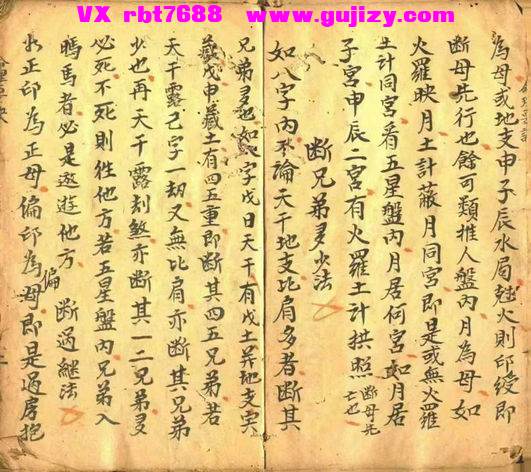 VX rbt7688 www.gujizy.com
為母或地支申子辰水局尅火則印綬即
断母先行也餘可類推人盤內月為母如
火羅映月土計蔽月同宮即是或無火羅
土計同宮看五星盤內月居何宮如月居
子宮申辰二宮有火羅土計拱照断母先亡也
断兄弟多少法
如八字內不論天干地支比肩多者断其
兄弟多也如八字戊日天干有戊土并地支寅
藏戊申藏土有四五重即断其四五兄弟若
天干露己字一劫又無比肩亦断其兄弟
少也再天干露刦煞亦断其一二兄弟多
必死不死則徃他方若五星盤內兄弟入
馬者必是遨遊他方
断過継法
正印為正母偏印為偏母即是過房抱